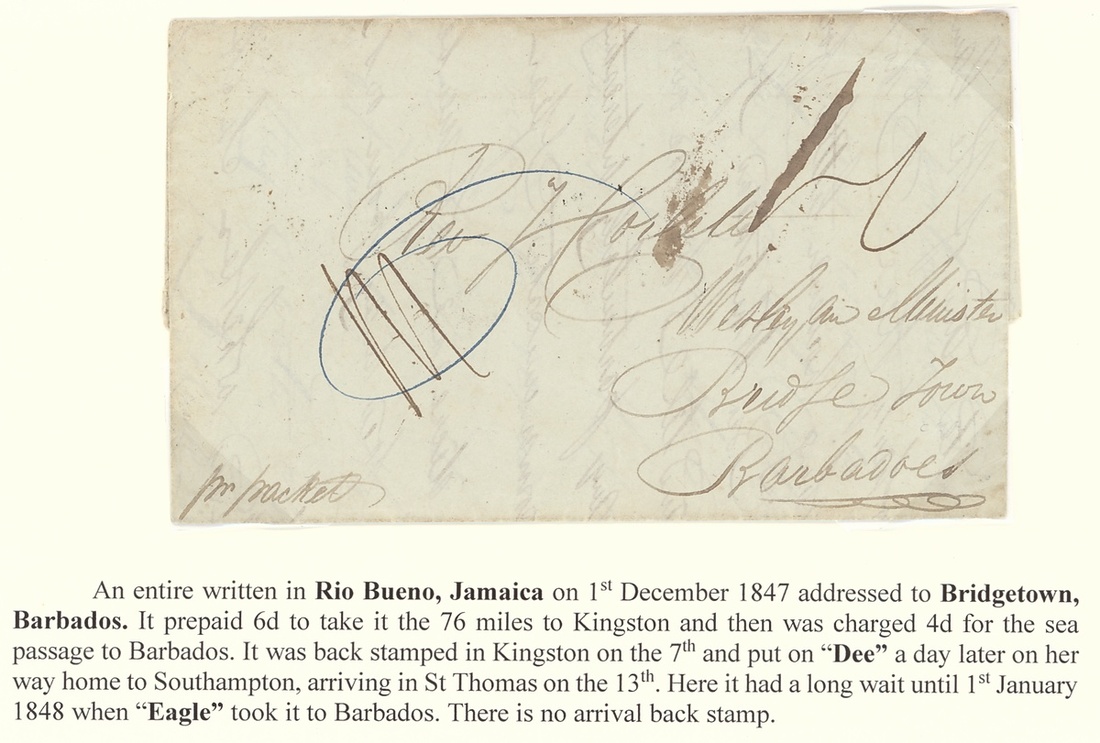 Rev
Wesleyan Minister
Bridge Town
Barbadoes
pr packet
An entire written in Rio Bueno, Jamaica on 1st December 1847 addressed to Bridgetown,
Barbados. It prepaid 6d to take it the 76 miles to Kingston and then was charged 4d for the sea
passage to Barbados. It was back stamped in Kingston on the 7th and put on “Dee” a day later on her
way home to Southampton, arriving in St Thomas on the 13th. Here it had a long wait until 1st January
1848 when “Eagle” took it to Barbados. There is no arrival back stamp.